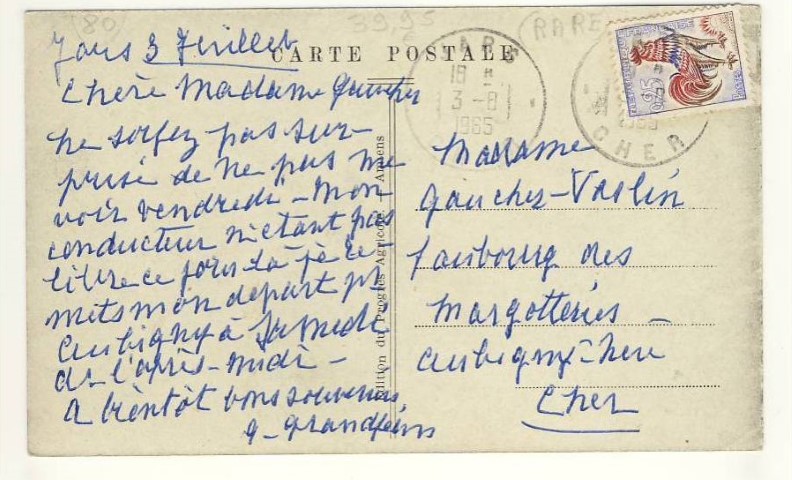 80
39,95
RARE
CARTE POSTALE
JARS
18 H
3-8
1965
CHER
0,25
Jars 3 Juillet
Chère Madame Gaucher
ne soyez pas sur-
prise de ne pas me
voir vendredi - mon
conducteur n'étant pas
libre ce jour là je re-
mets mon départ pr
Aubigny à Samedi
de l'après-midi -
A bientôt bons souvenirs
Edition du Progrès Agricole - Amiens
Madame
Gaucher-Vaslin
faubourg des
Margotteries -
Aubigny-s-Nère
Cher